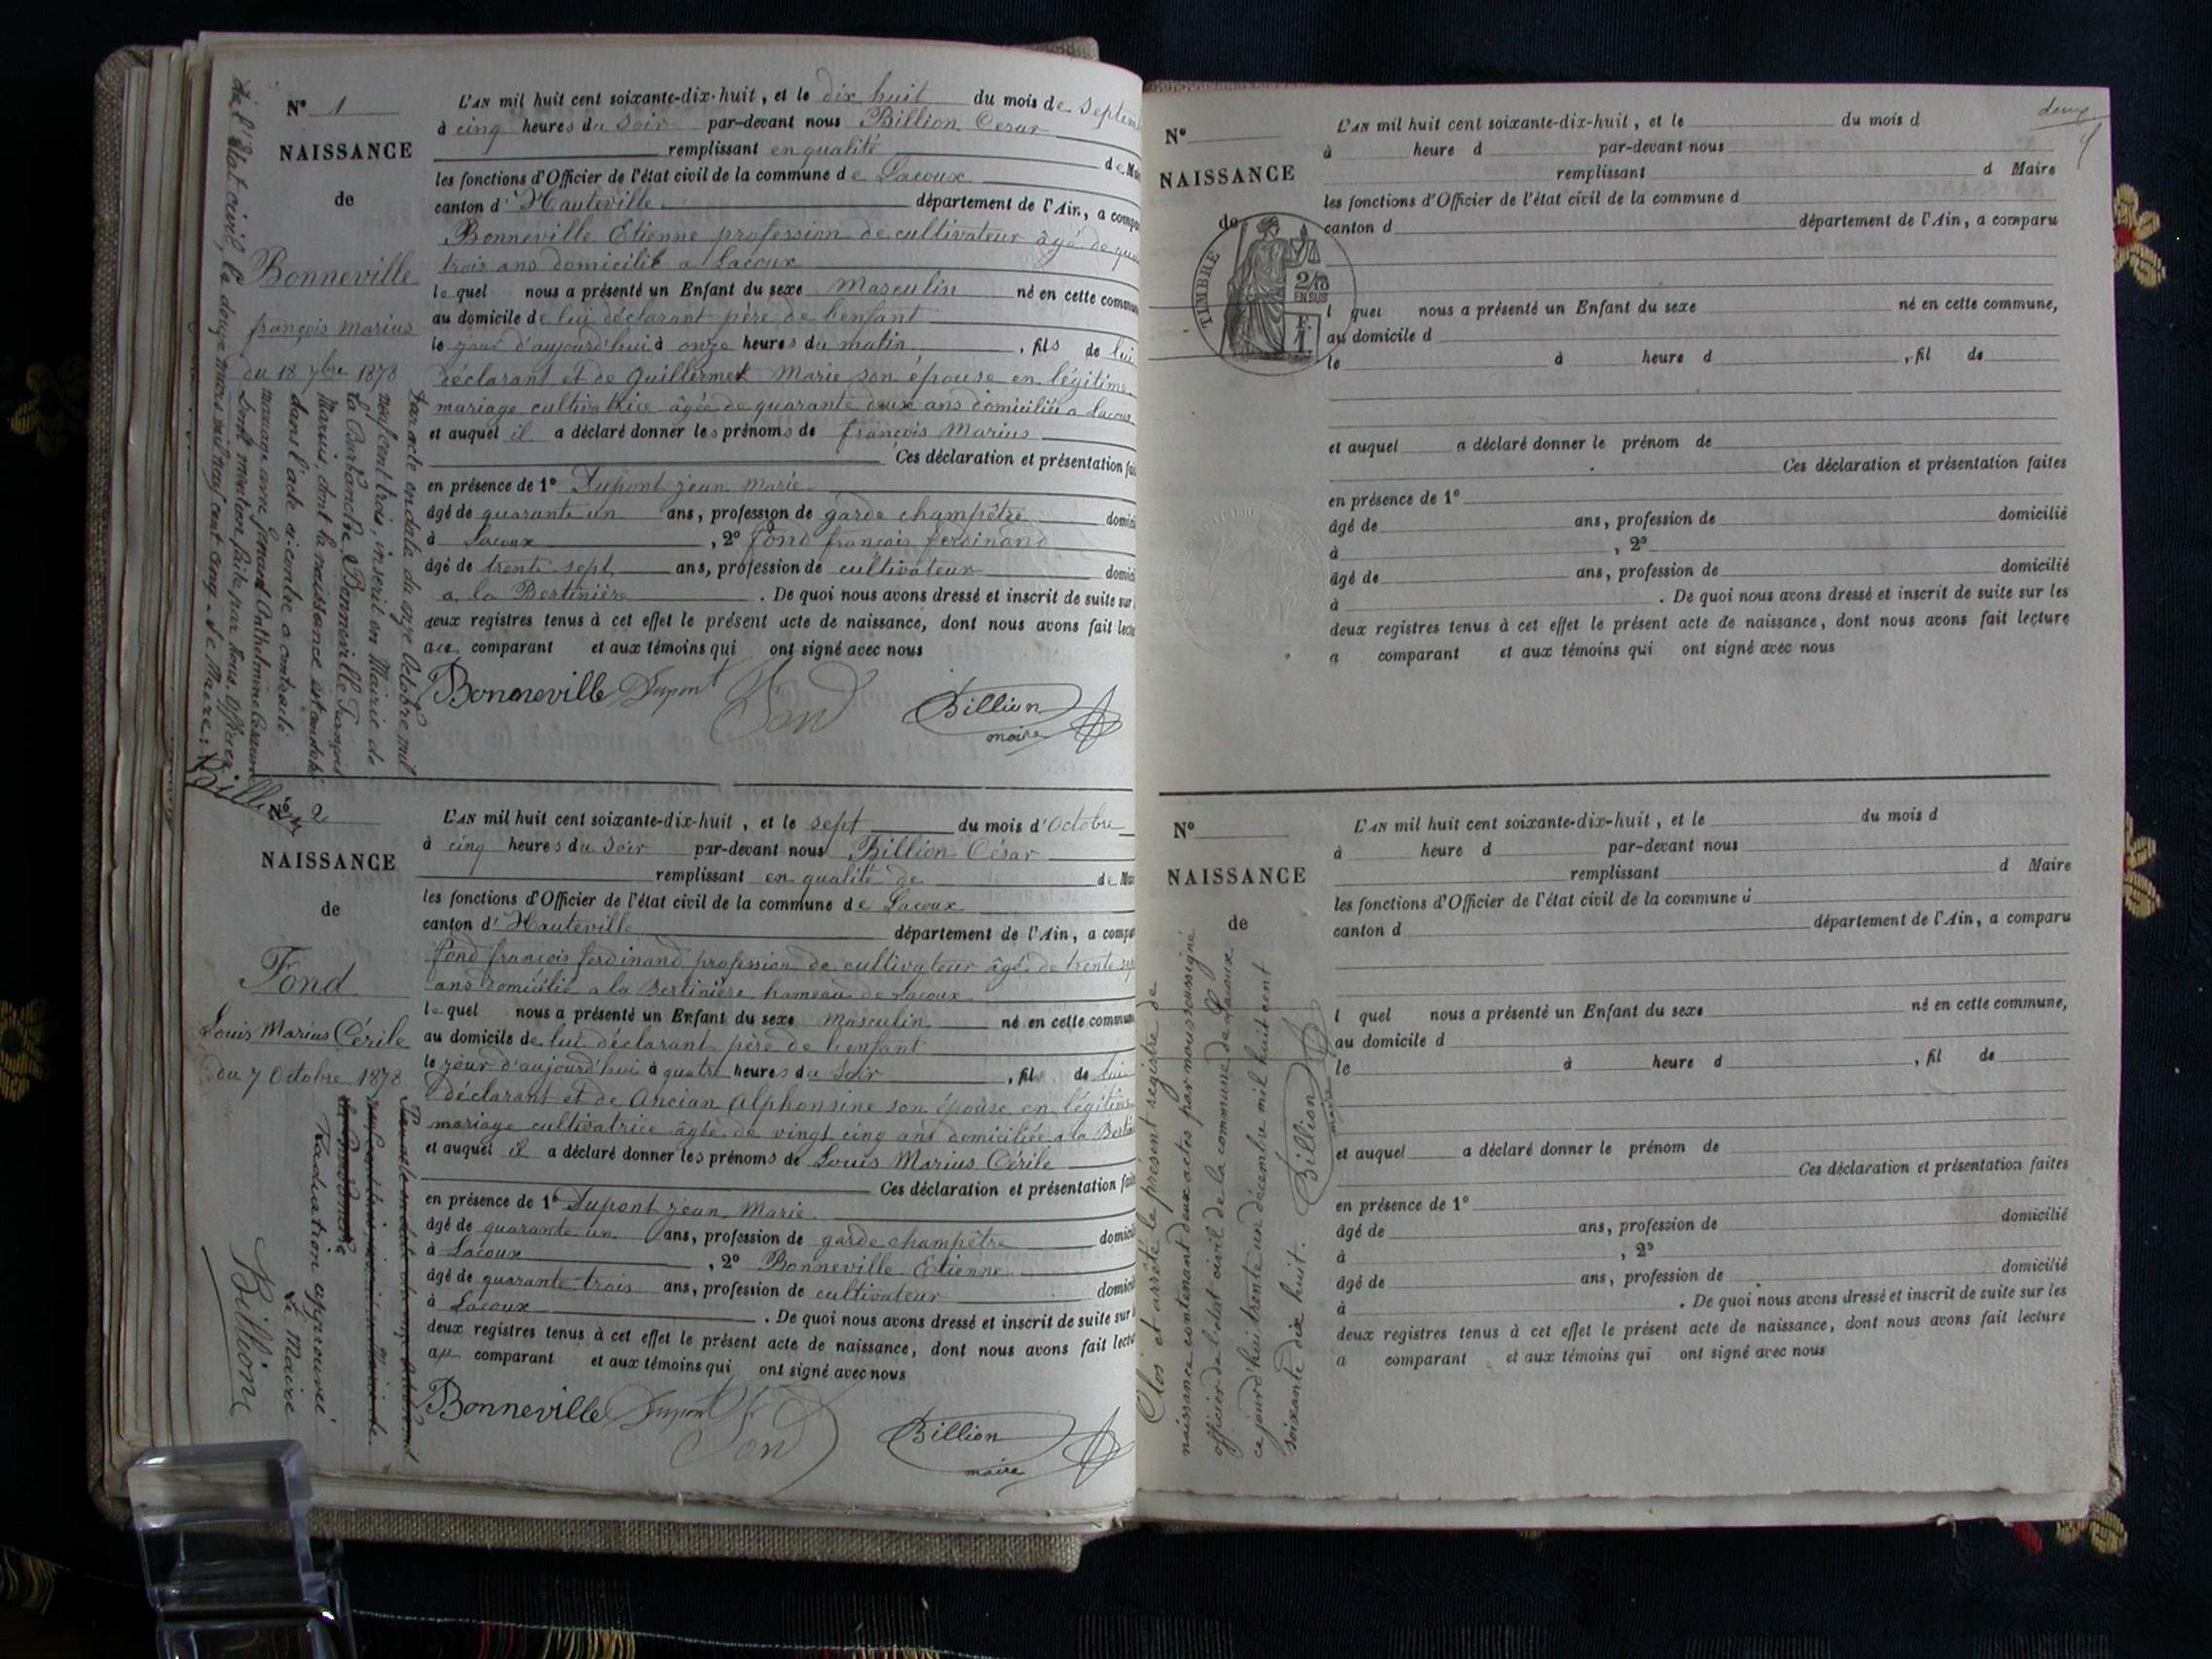 N° 1
NAISSANCE
de
Bonneville
françois Marius
du 18 7bre 1878
L'AN mil huit cent soixante-dix-huit, et le dix huit du mois de Septem
à cinq heures du Soir par-devant nous Billion Cesar
remplissant en qualité de Ma
les fonctions d'Officier de l'état civil de la commune de Lacoux
canton d'Hauteville département de l'Ain, a compa
Bonneville Etienne profession de cultivateur âgé de qua
trois ans domicilié a Lacoux
le quel nous a présenté un Enfant du sexe Masculin né en cette commun
au domicile de lui déclarant père de l'enfant
le jour d'aujourd'hui à onze heures du matin, fils de lui
déclarant et de Guillermet Marie son épouse en légitime
mariage cultivatrice âgée de quarante deux ans domiciliée a Lacoux
et auquel il a déclaré donner les prénoms de françois Marius
Ces déclaration et présentation fai
en présence de 1° Dupont jean Marie
âgé de quarante un ans, profession de garde champêtre domici
à Lacoux, 2° fond francois ferdinand
âgé de trente sept ans, profession de cultivateur domici
a la Bertinière. De quoi nous avons dressé et inscrit de suite sur
deux registres tenus à cet effet le présent acte de naissance, dont nous avons fait lectu
au comparant et aux témoins qui ont signé avec nous
Bonneville Dupont Fond Billion
maire
Par acte en date du onze Octobre mil
neuf cent trois, inscrit en Mairie de
la Burbanche, Bonneville François
Marius, dont la naissance est constatée
dans l'acte ci contre a contracté
mariage avec Anthelmine
Dont mention faite par Nous, Officier
de l'Etat civil, le douze mars mil neuf cent cinq - Le Maire:
Billion
N° 2
NAISSANCE
de
Fond
Louis Marius Cérile
du 7 Octobre 1878
L'AN mil huit cent soixante-dix-huit, et le sept du mois d'Octobre
à cinq heures du Soir par-devant nous Billion César
remplissant en qualité de de Ma
les fonctions d'Officier de l'état civil de la commune de Lacoux
canton d'Hauteville département de l'Ain, a compa
fond francois ferdinand profession de cultivateur âgé de trente sep
ans domicilié a la Bertinière hameau de Lacoux
le quel nous a présenté un Enfant du sexe masculin né en cette commun
au domicile de lui déclarant père de l'enfant
le jour d'aujourd'hui à quatre heures du Soir, fils de lui
déclarant et de Ancian Alphonsine son épouse en légitime
mariage cultivatrice âgée de vingt cinq ans domiciliée a la Berti
et auquel il a déclaré donner les prénoms de Louis Marius Cérile
Ces déclaration et présentation fai
en présence de 1° Dupont jean Marie
âgé de quarante un ans, profession de garde champêtre domici
à Lacoux, 2° Bonneville Etienne
âgé de quarante trois ans, profession de cultivateur domici
à Lacoux. De quoi nous avons dressé et inscrit de suite sur
deux registres tenus à cet effet le présent acte de naissance, dont nous avons fait lectu
au comparant et aux témoins qui ont signé avec nous
Bonneville Dupont Fond Billion
maire
Radiation approuvée
Le Maire
Billion
N°
NAISSANCE
de
TIMBRE
2/10
EN SUS
F.
1
L'AN mil huit cent soixante-dix-huit, et le du mois d
à heure d par-devant nous
remplissant d Maire
les fonctions d'Officier de l'état civil de la commune d
canton d département de l'Ain, a comparu
l quel nous a présenté un Enfant du sexe né en cette commune,
au domicile d
le à heure d, fil de
et auquel a déclaré donner le prénom de
Ces déclaration et présentation faites
en présence de 1°
âgé de ans, profession de domicilié
à, 2°
âgé de ans, profession de domicilié
à. De quoi nous avons dressé et inscrit de suite sur les
deux registres tenus à cet effet le présent acte de naissance, dont nous avons fait lecture
a comparant et aux témoins qui ont signé avec nous
N°
NAISSANCE
de
L'AN mil huit cent soixante-dix-huit, et le du mois d
à heure d par-devant nous
remplissant d Maire
les fonctions d'Officier de l'état civil de la commune d
canton d département de l'Ain, a comparu
l quel nous a présenté un Enfant du sexe né en cette commune,
au domicile d
le à heure d, fil de
et auquel a déclaré donner le prénom de
Ces déclaration et présentation faites
en présence de 1°
âgé de ans, profession de domicilié
à, 2°
âgé de ans, profession de domicilié
à. De quoi nous avons dressé et inscrit de suite sur les
deux registres tenus à cet effet le présent acte de naissance, dont nous avons fait lecture
a comparant et aux témoins qui ont signé avec nous
Clos et arrêté le présent registre de
naissance contenant deux actes par nous soussigné
officier de l'état civil de la commune de Lacoux
ce jourd'hui trente un décembre mil huit cent
soixante dix huit.
Billion
maire